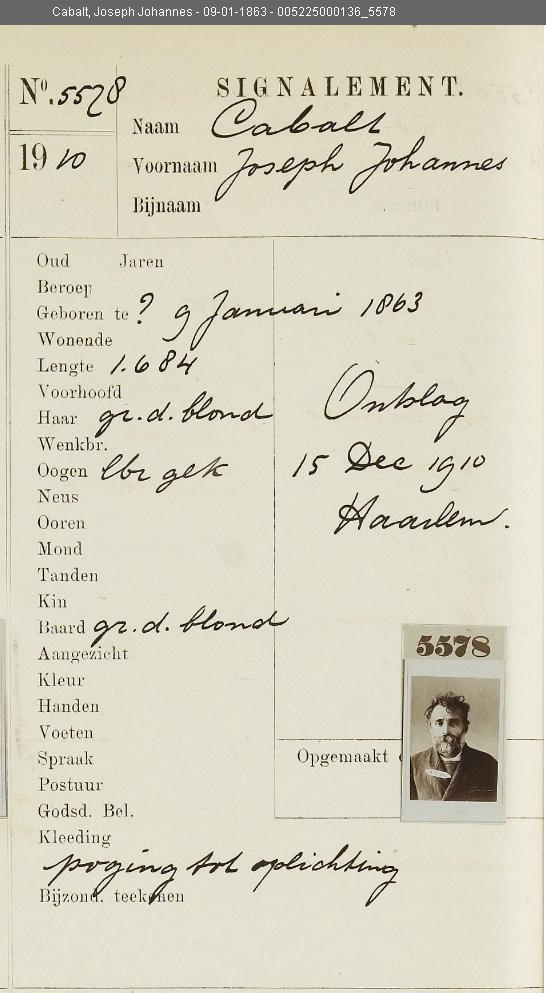 Cabalt, Joseph Johannes - 09-01-1863 - 005225000136_5578
Nº. 5578
SIGNALEMENT.
Naam Cabalt
1910
Voornaam Joseph Johannes
Bijnaam
Oud Jaren
Beroep
Geboren te ? 9 Januari 1863
Wonende
Lengte 1.684
Voorhoofd
Haar gr. d. blond
Wenkbr.
Oogen lbr gek
Neus
Ooren
Mond
Tanden
Kin
Baard gr. d. blond
Aangezicht
Kleur
Handen
Voeten
Spraak
Postuur
Godsd. Bel.
Kleeding
poging tot oplichting
Bijzond. teekenen
Ontslag
15 Dec 1910
Haarlem.
5578
Opgemaakt